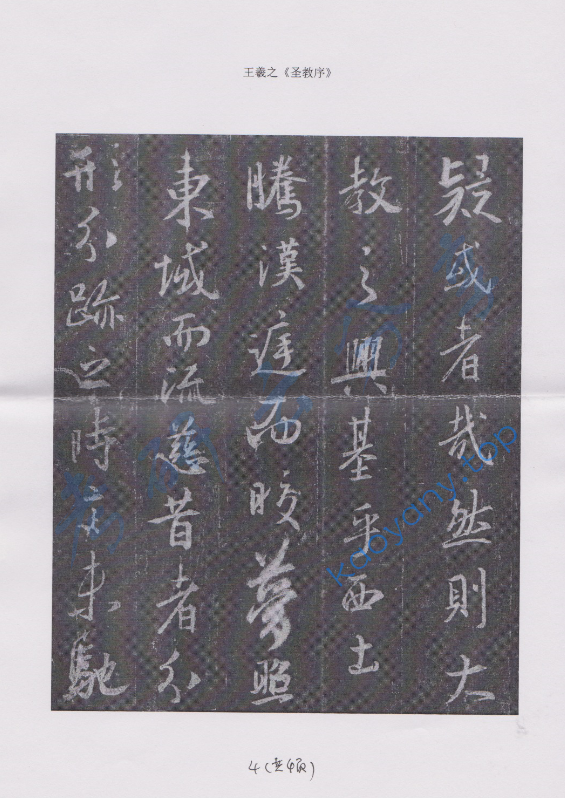 王羲之《圣教序》
疑或者哉然則大
教之興基乎西土
騰漢庭而皎夢照
東域而流慈昔者分
形分跡之時言未馳
kaoyany.top
4(共4页)